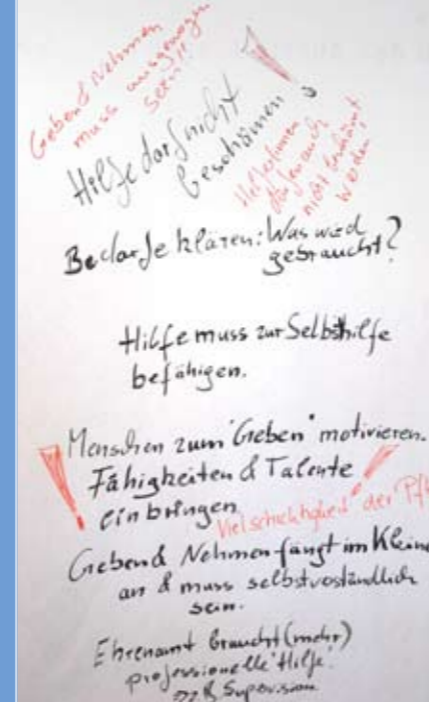 Geben & Nehmen
muss ausgewogen
sein!!
Hilfe darf nicht
beschämen!
HelferInnen
dürfen auch
nicht beschämt
werden
Bedarfe klären: Was wird
gebraucht?
Hilfe muss zur Selbsthilfe
befähigen.
Menschen zum "Geben" motivieren.
Fähigkeiten & Talente
einbringen
Vielschichtigkeit der
Geben & Nehmen fängt im Kleine
an & muss selbstverständlich
sein.
Ehrenamt braucht (mehr)
professionelle "Hilfe"
Supervision